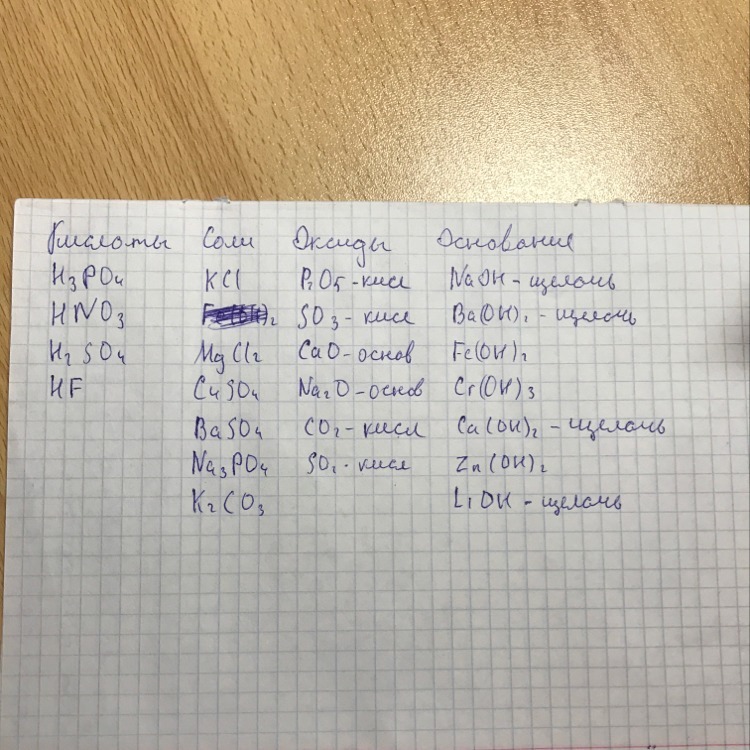 Кислоты Соли Оксиды Основание
H3PO4 KCl P2O5 - кисл NaOH - щелочь
HNO3 SO3 - кисл Ba(OH)2 - щелочь
H2SO4 MgCl2 CaO - основ Fe(OH)2
HF CuSO4 Na2O - основ Cr(OH)3
BaSO4 CO2 - кисл Ca(OH)2 - щелочь
Na3PO4 SO2 - кисл Zn(OH)2
K2CO3 LiOH - щелочь